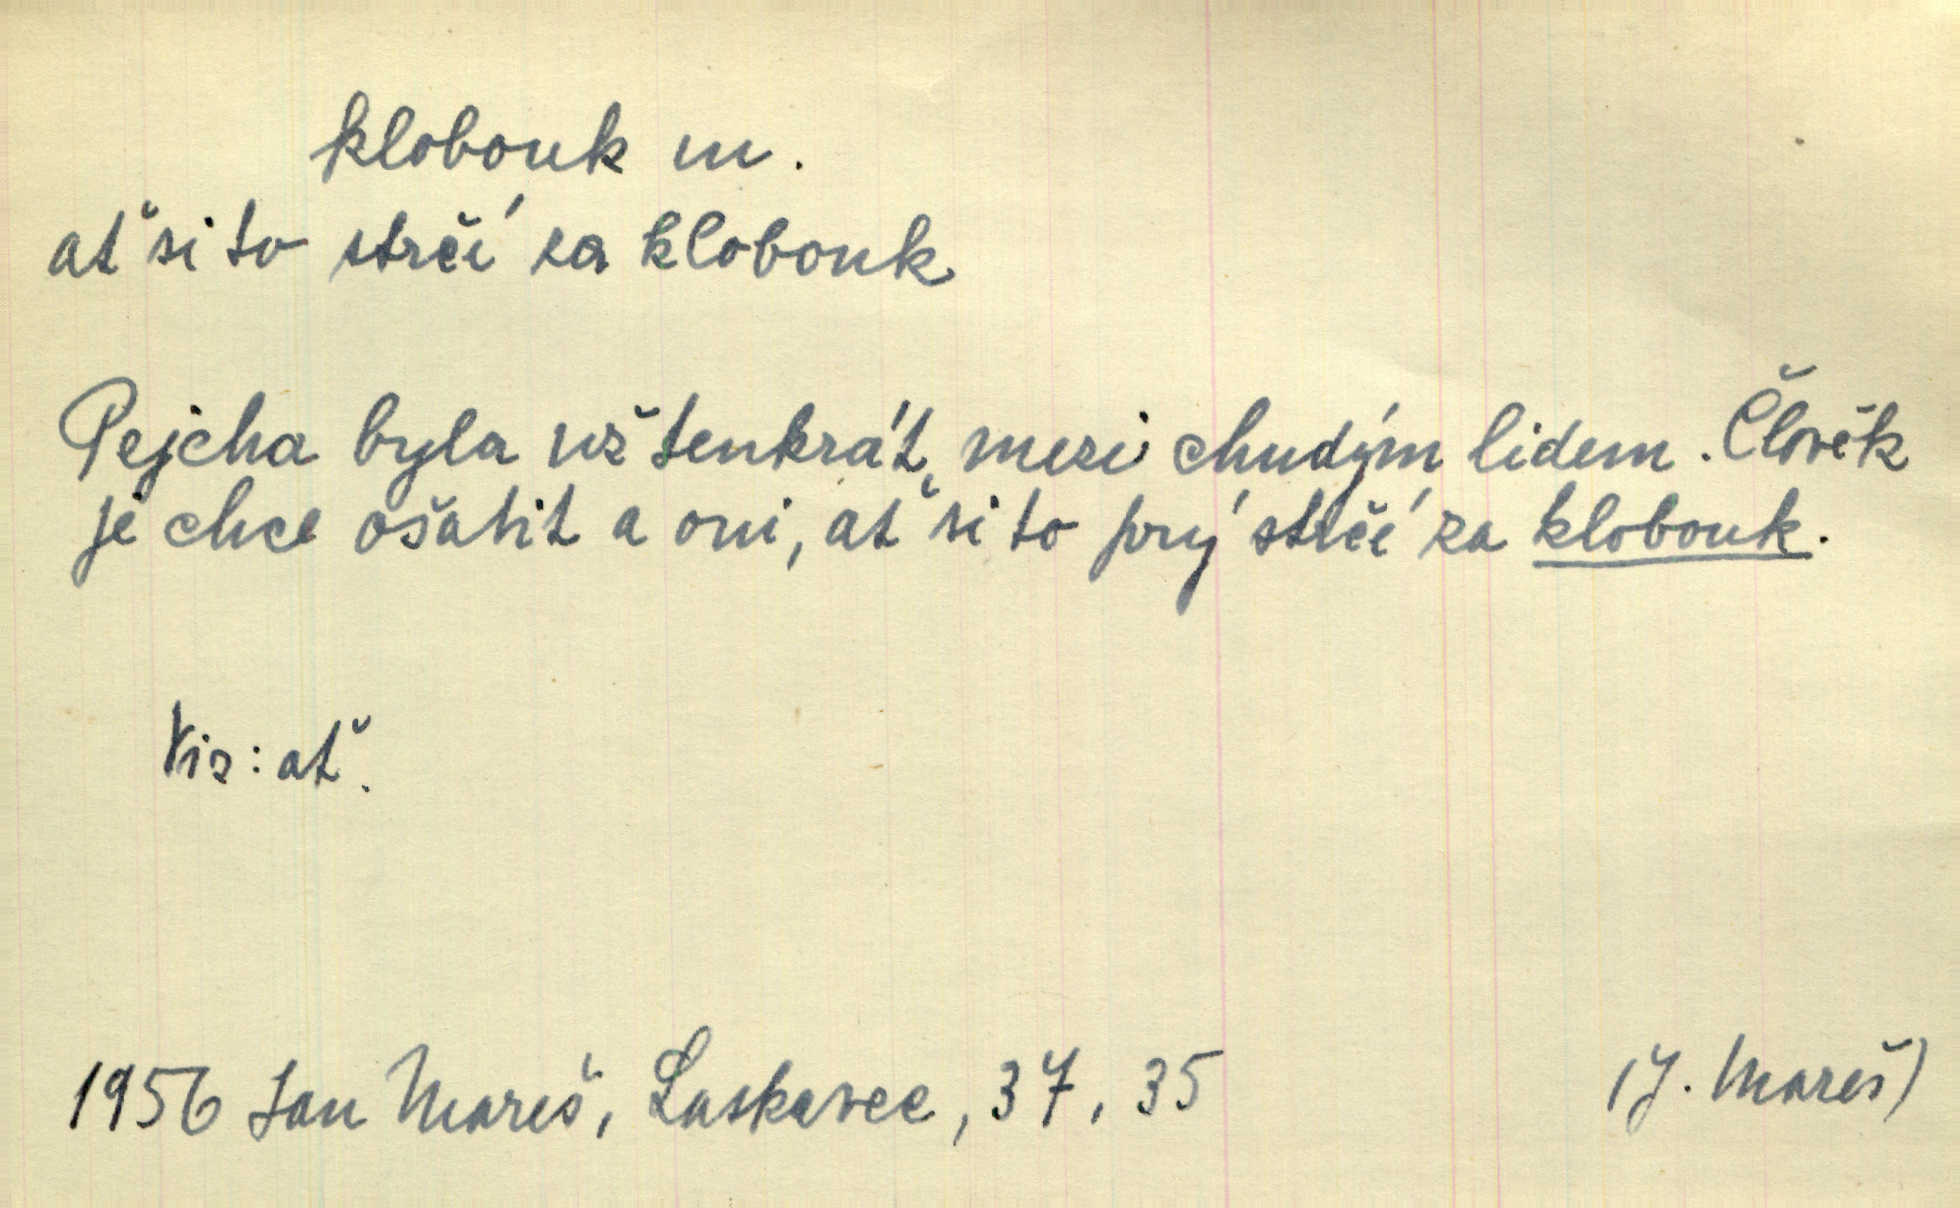 klobouk m.
ať si to strčí za klobouk
Pejcha byla už tenkrát mezi chudým lidem. Člověk
je chce ošatit a oni, ať si to prý strčí za klobouk.
Viz: ať.
1956 Jan Mareš, Laskavec, 37, 35 (J. Mareš)